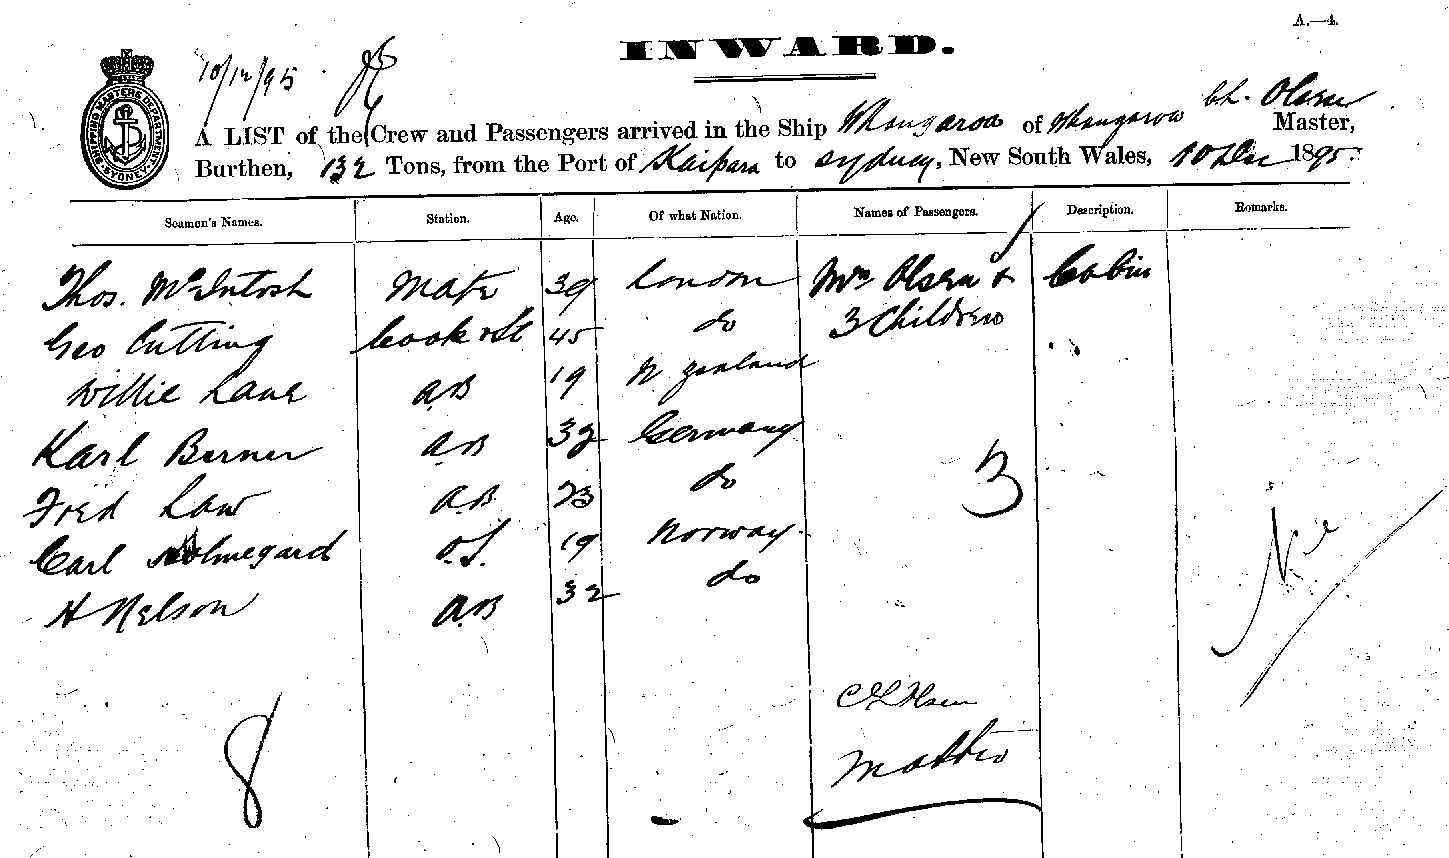 A.—4.
INWARD.
10/12/95
SHIPPING MASTERS DEPARTMENT SYDNEY
Ch. Olsen
A LIST of the Crew and Passengers arrived in the Ship Whangaroa of Whangaroa Master,
Burthen, 132 Tons, from the Port of Kaipara to Sydney, New South Wales, 10 Dec 1895.
Seamen's Names. Station. Age. Of what Nation. Names of Passengers. Description. Remarks.
Thos. McIntosh Mate 39 London Mrs Olsen & Cabin
Geo Cutting Cook & St 45 do 3 Children
Willie Lane AB 19 N Zealand
Karl Berner AB 32 Germany
Fred Law AB 23 do
3
Carl Holmegard O.S. 19 Norway
H Nelson AB 32 do
C L Olsen
Master
8